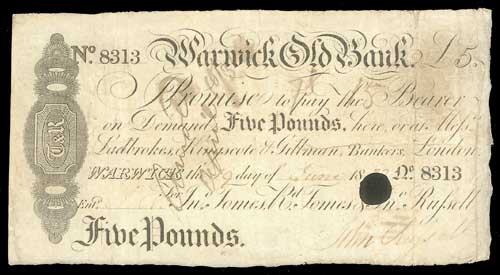 No. 8313 Warwick Old Bank. £5.
I Promise to pay the Bearer
on Demand Five Pounds, here, or at Mess.rs
Ladbrokes, Kingscote & Gillman, Bankers, London.
WARWICK the day of June 18 No. 8313
For Jn.o Tomes, Rd. Tomes & Jn.o Russell
Ent.d
Five Pounds.
John Russell
T&R